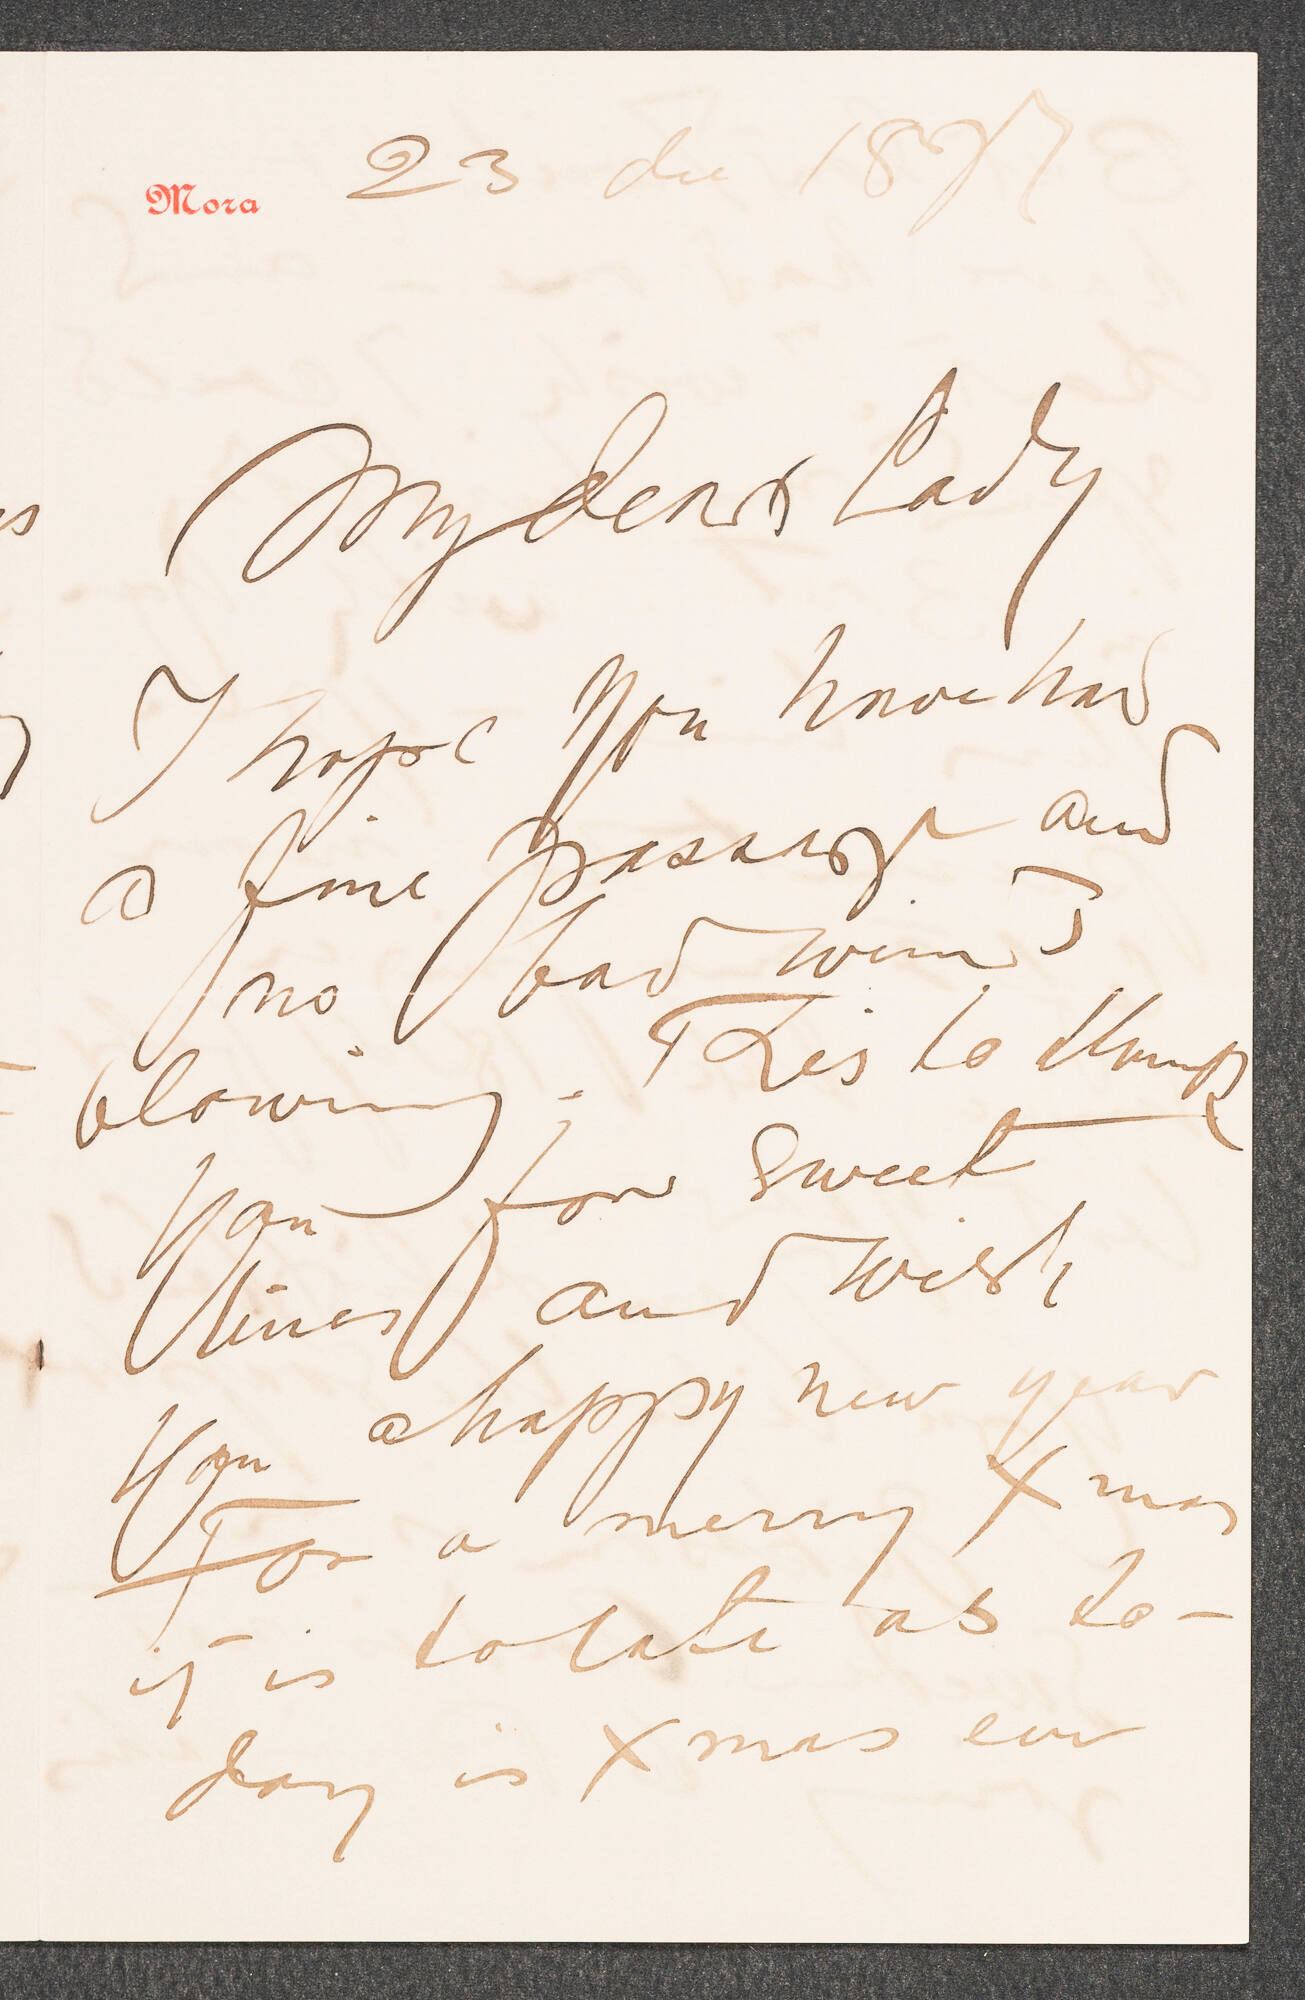 Mora
23 dec 1897
My dear Lady
I hope you have had
a fine passage and
no bad winds
blowing - This to thank
you for sweet
lines and wish
you a happy new year
For a merry Xmas
it is to late as to-
day is Xmas eve